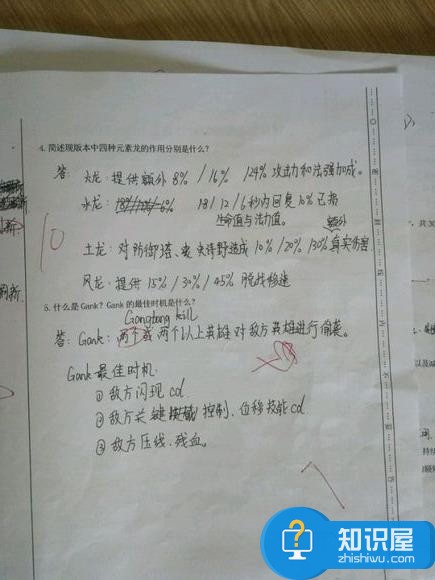 4. 简述现版本中四种元素龙的作用分别是什么?
答: 火龙: 提供额外 8% / 16% / 24% 攻击力和法强加成。
水龙: 18 / 12 / 6 秒内回复 10% 已损
生命值与法力值。
额外
土龙: 对防御塔、 史诗野造成 10% / 20% / 30% 真实伤害
10
风龙: 提供 15% / 30% / 45% 脱战移速
5. 什么是 Gank? Gank 的最佳时机是什么?
Gangbang kill
答: Gank: 两个或 两个以上英雄对敌方英雄进行偷袭。
Gank 最佳时机
① 敌方闪现 cd
② 敌方关键 控制、位移技能 cd
③ 敌方压线、残血。
刷新
知识屋
zhishiwu.com